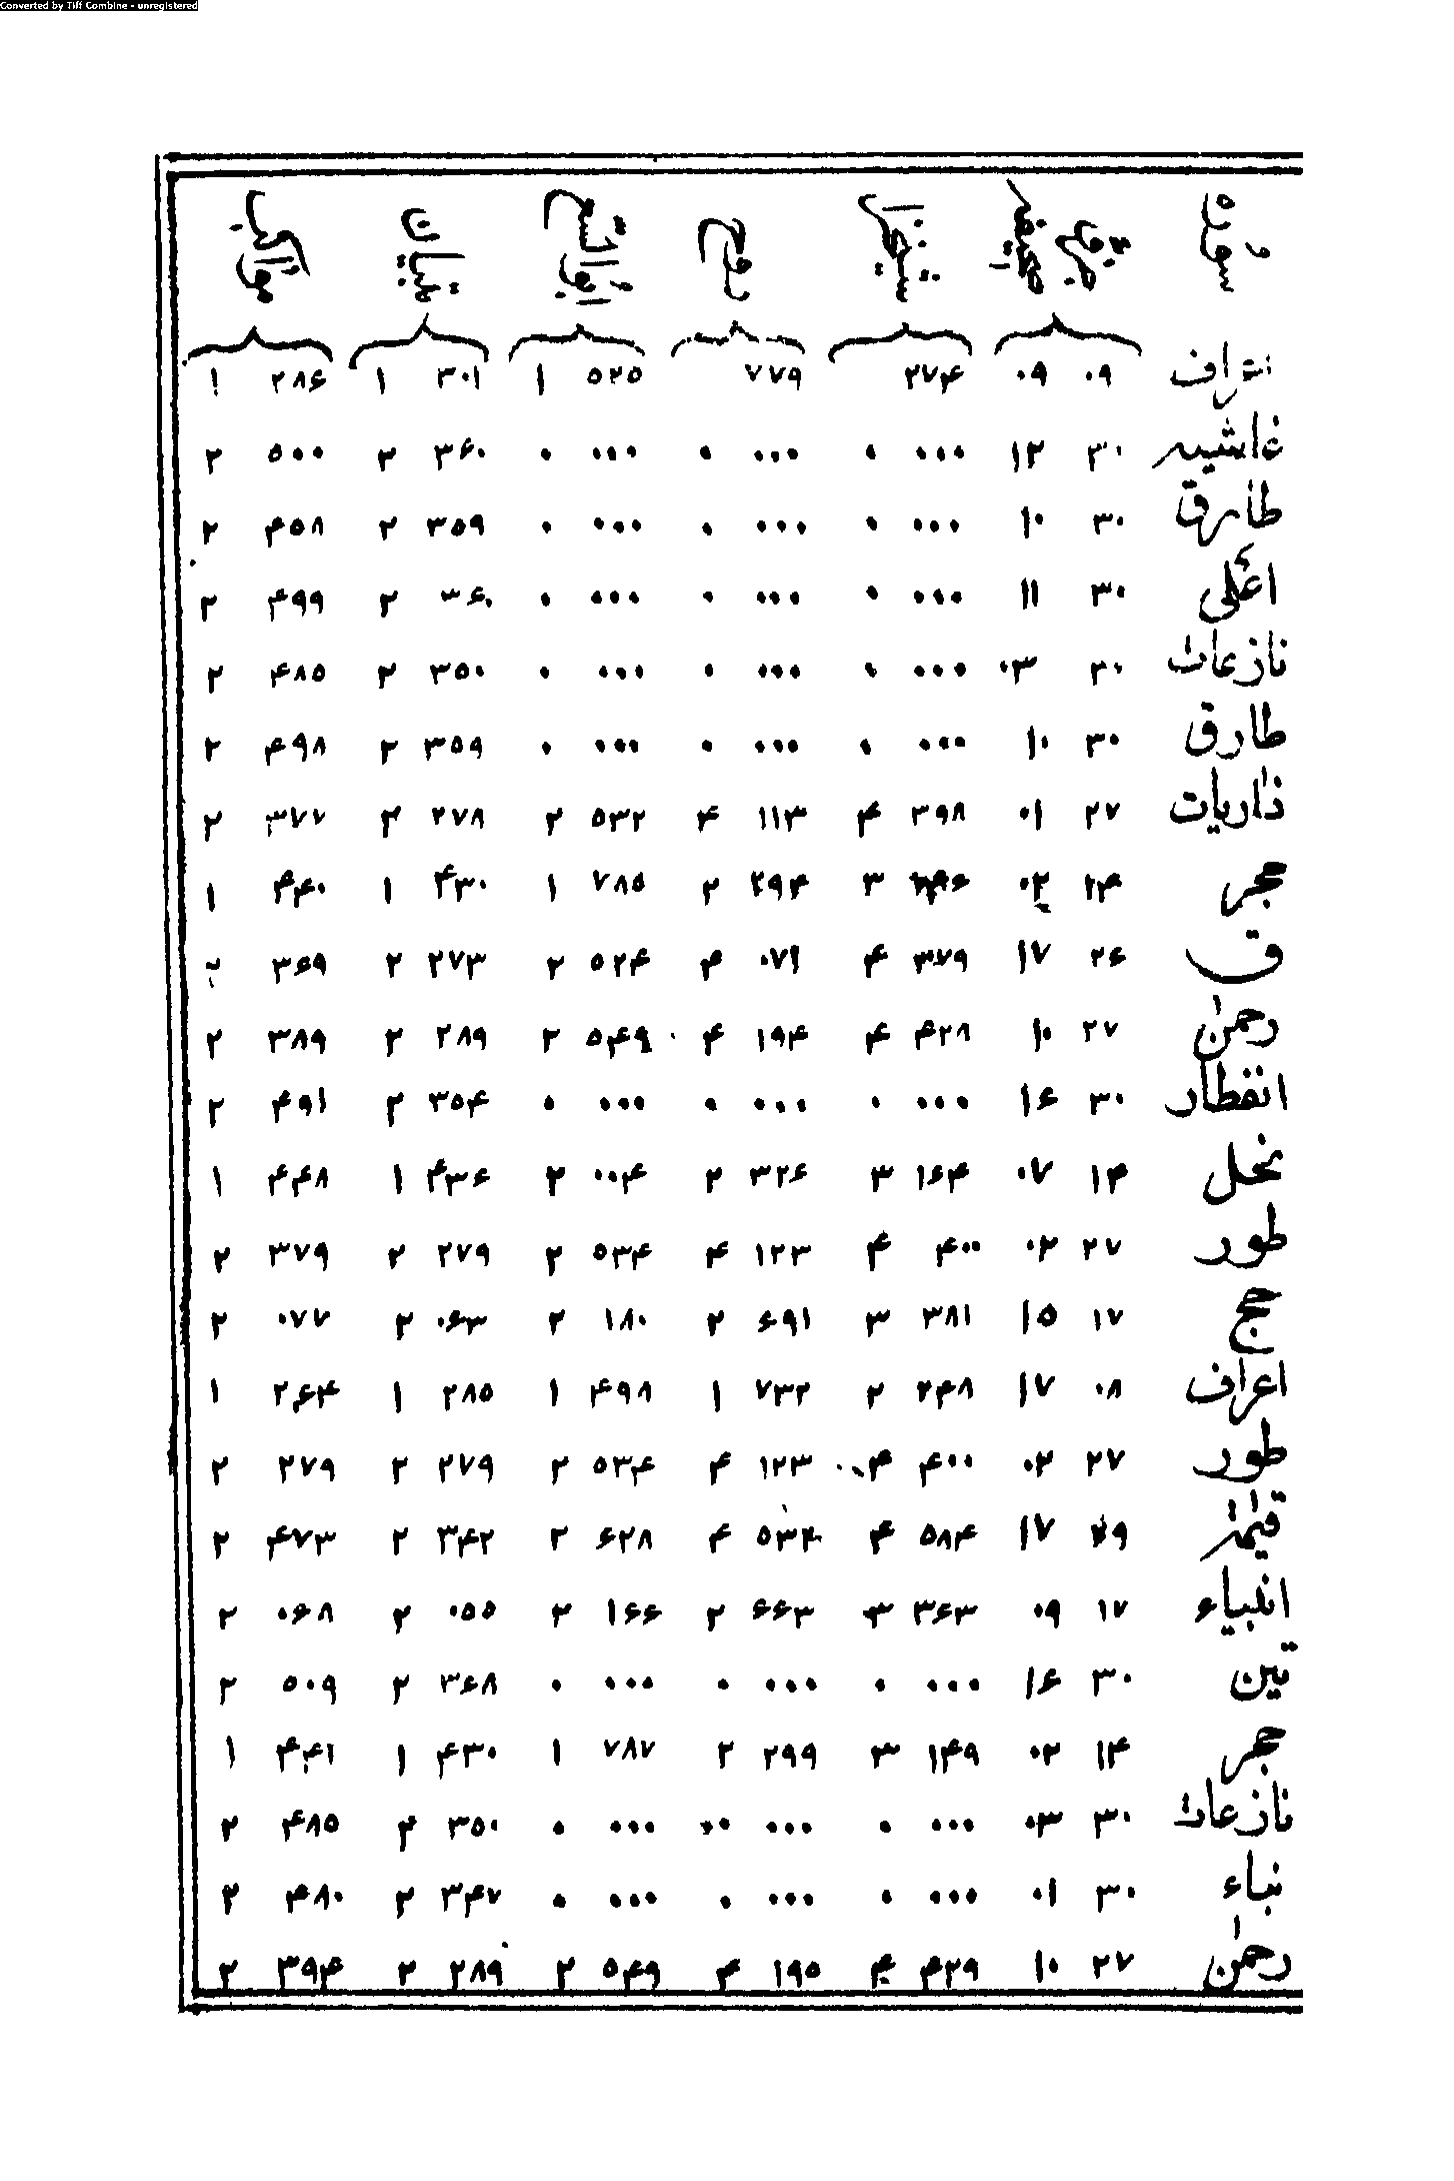 Converted by Tiff Combine - unregistered
سوره جزو
اعراف ۰۹ ۰۹ ۲۷۴ ۷۷۹ ۵۲۵ ۱ ۳۰۱ ۱ ۲۸۶ ۱
غاشیه ۳۰ ۱۲ ۰۰۰ ۰ ۰۰۰ ۰ ۰۰۰ ۰ ۳۶۰ ۲ ۵۰۰ ۲
طارق ۳۰ ۱۰ ۰۰۰ ۰ ۰۰۰ ۰ ۰۰۰ ۰ ۳۵۹ ۲ ۴۵۸ ۲
اعلی ۳۰ ۱۱ ۰۰۰ ۰ ۰۰۰ ۰ ۰۰۰ ۰ ۳۶۰ ۲ ۴۹۹ ۲
نازعات ۳۰ ۰۳ ۰۰۰ ۰ ۰۰۰ ۰ ۰۰۰ ۰ ۳۵۰ ۲ ۴۸۵ ۲
طارق ۳۰ ۱۰ ۰۰۰ ۰ ۰۰۰ ۰ ۰۰۰ ۰ ۳۵۹ ۲ ۴۹۸ ۲
ذاریات ۲۷ ۰۱ ۳۹۸ ۴ ۱۱۳ ۴ ۵۳۲ ۲ ۲۷۸ ۲ ۳۷۷ ۲
حجر ۱۴ ۰۲ ۳ ۲۹۴ ۲ ۷۸۵ ۱ ۴۳۰ ۱ ۴۴۰ ۱
ق ۲۶ ۱۷ ۳۷۹ ۴ ۰۷۱ ۴ ۵۲۴ ۲ ۲۷۳ ۲ ۳۶۹ ۲
رحمن ۲۷ ۱۰ ۴۲۸ ۴ ۱۹۴ ۴ ۵۴۹ ۲ ۲۸۹ ۲ ۳۸۹ ۲
انفطار ۳۰ ۱۶ ۰۰۰ ۰ ۰۰۰ ۰ ۰۰۰ ۰ ۳۵۴ ۲ ۴۹۱ ۲
نحل ۱۴ ۰۷ ۱۶۴ ۳ ۳۲۶ ۲ ۰۰۴ ۲ ۴۳۶ ۱ ۴۴۸ ۱
طور ۲۷ ۰۲ ۴۰۰ ۴ ۱۲۳ ۴ ۵۳۴ ۲ ۲۷۹ ۲ ۳۷۹ ۲
حج ۱۷ ۱۵ ۳۸۱ ۳ ۶۹۱ ۲ ۱۸۰ ۲ ۰۶۳ ۲ ۰۷۷ ۲
اعراف ۰۸ ۱۷ ۲۴۸ ۲ ۷۳۲ ۱ ۴۹۸ ۱ ۲۸۵ ۱ ۲۶۴ ۱
طور ۲۷ ۰۲ ۴۰۰ ۴ ۱۲۳ ۴ ۵۳۴ ۲ ۲۷۹ ۲ ۲۷۹ ۲
قیمة ۲۹ ۱۷ ۵۸۴ ۴ ۵۳۴ ۴ ۶۲۸ ۲ ۳۴۲ ۲ ۴۷۳ ۲
انبیاء ۱۷ ۰۹ ۳۶۳ ۳ ۶۶۳ ۲ ۱۶۶ ۲ ۰۵۵ ۲ ۰۶۸ ۲
تین ۳۰ ۱۶ ۰۰۰ ۰ ۰۰۰ ۰ ۰۰۰ ۰ ۳۶۸ ۲ ۵۰۹ ۲
حجر ۱۴ ۰۲ ۱۴۹ ۳ ۲۹۹ ۲ ۷۸۷ ۱ ۴۳۰ ۱ ۴۴۱ ۱
نازعات ۳۰ ۰۳ ۰۰۰ ۰ ۰۰۰ ۰ ۰۰۰ ۰ ۳۵۰ ۲ ۴۸۵ ۲
نباء ۳۰ ۰۱ ۰۰۰ ۰ ۰۰۰ ۰ ۰۰۰ ۰ ۳۴۷ ۲ ۴۸۰ ۲
رحمن ۲۷ ۱۰ ۴۲۹ ۴ ۱۹۵ ۴ ۵۴۹ ۲ ۲۸۹ ۲ ۳۹۴ ۲